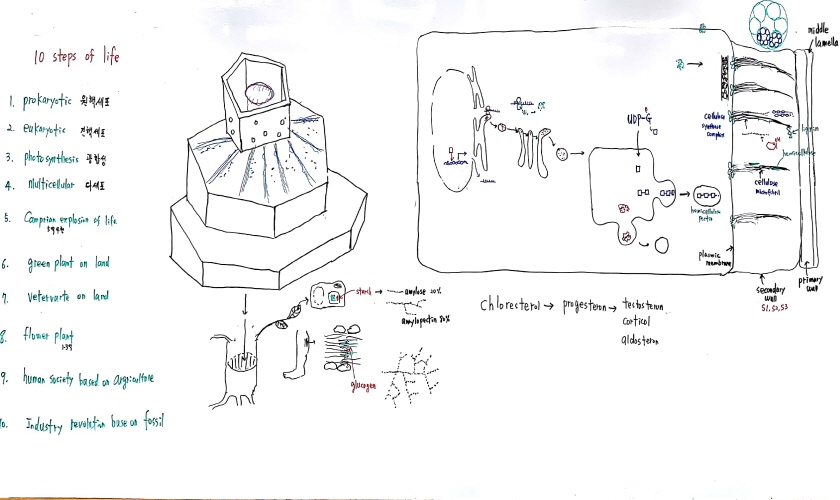 10 steps of life
1. prokaryotic 원핵세포
2. eukaryotic 진핵세포
3. photosynthesis 광합성
4. multicellular 다세포
5. Camprian explosion of life
6. green plant on land
7. vetervarte on land
8. flower plant
9. human society based on augriculture
10. Industry revolution base on fossil
starch → amylose 20%
amylopectin 80%
glucogen
UDP-G
hemicellulose
pectin
plasmic
membrane
cellulose
synthase
complex
cellulose
microfibril
lignin
hemicellulose
middle
lamella
primary
wall
secondary
wall
S1, S2, S3
Chloresterol → progesteron → testosterun
cortisol
aldosteron